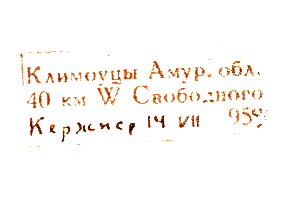 Климоуцы Амур. обл.
40 км W Свободного
Кержнер 14 VII 959